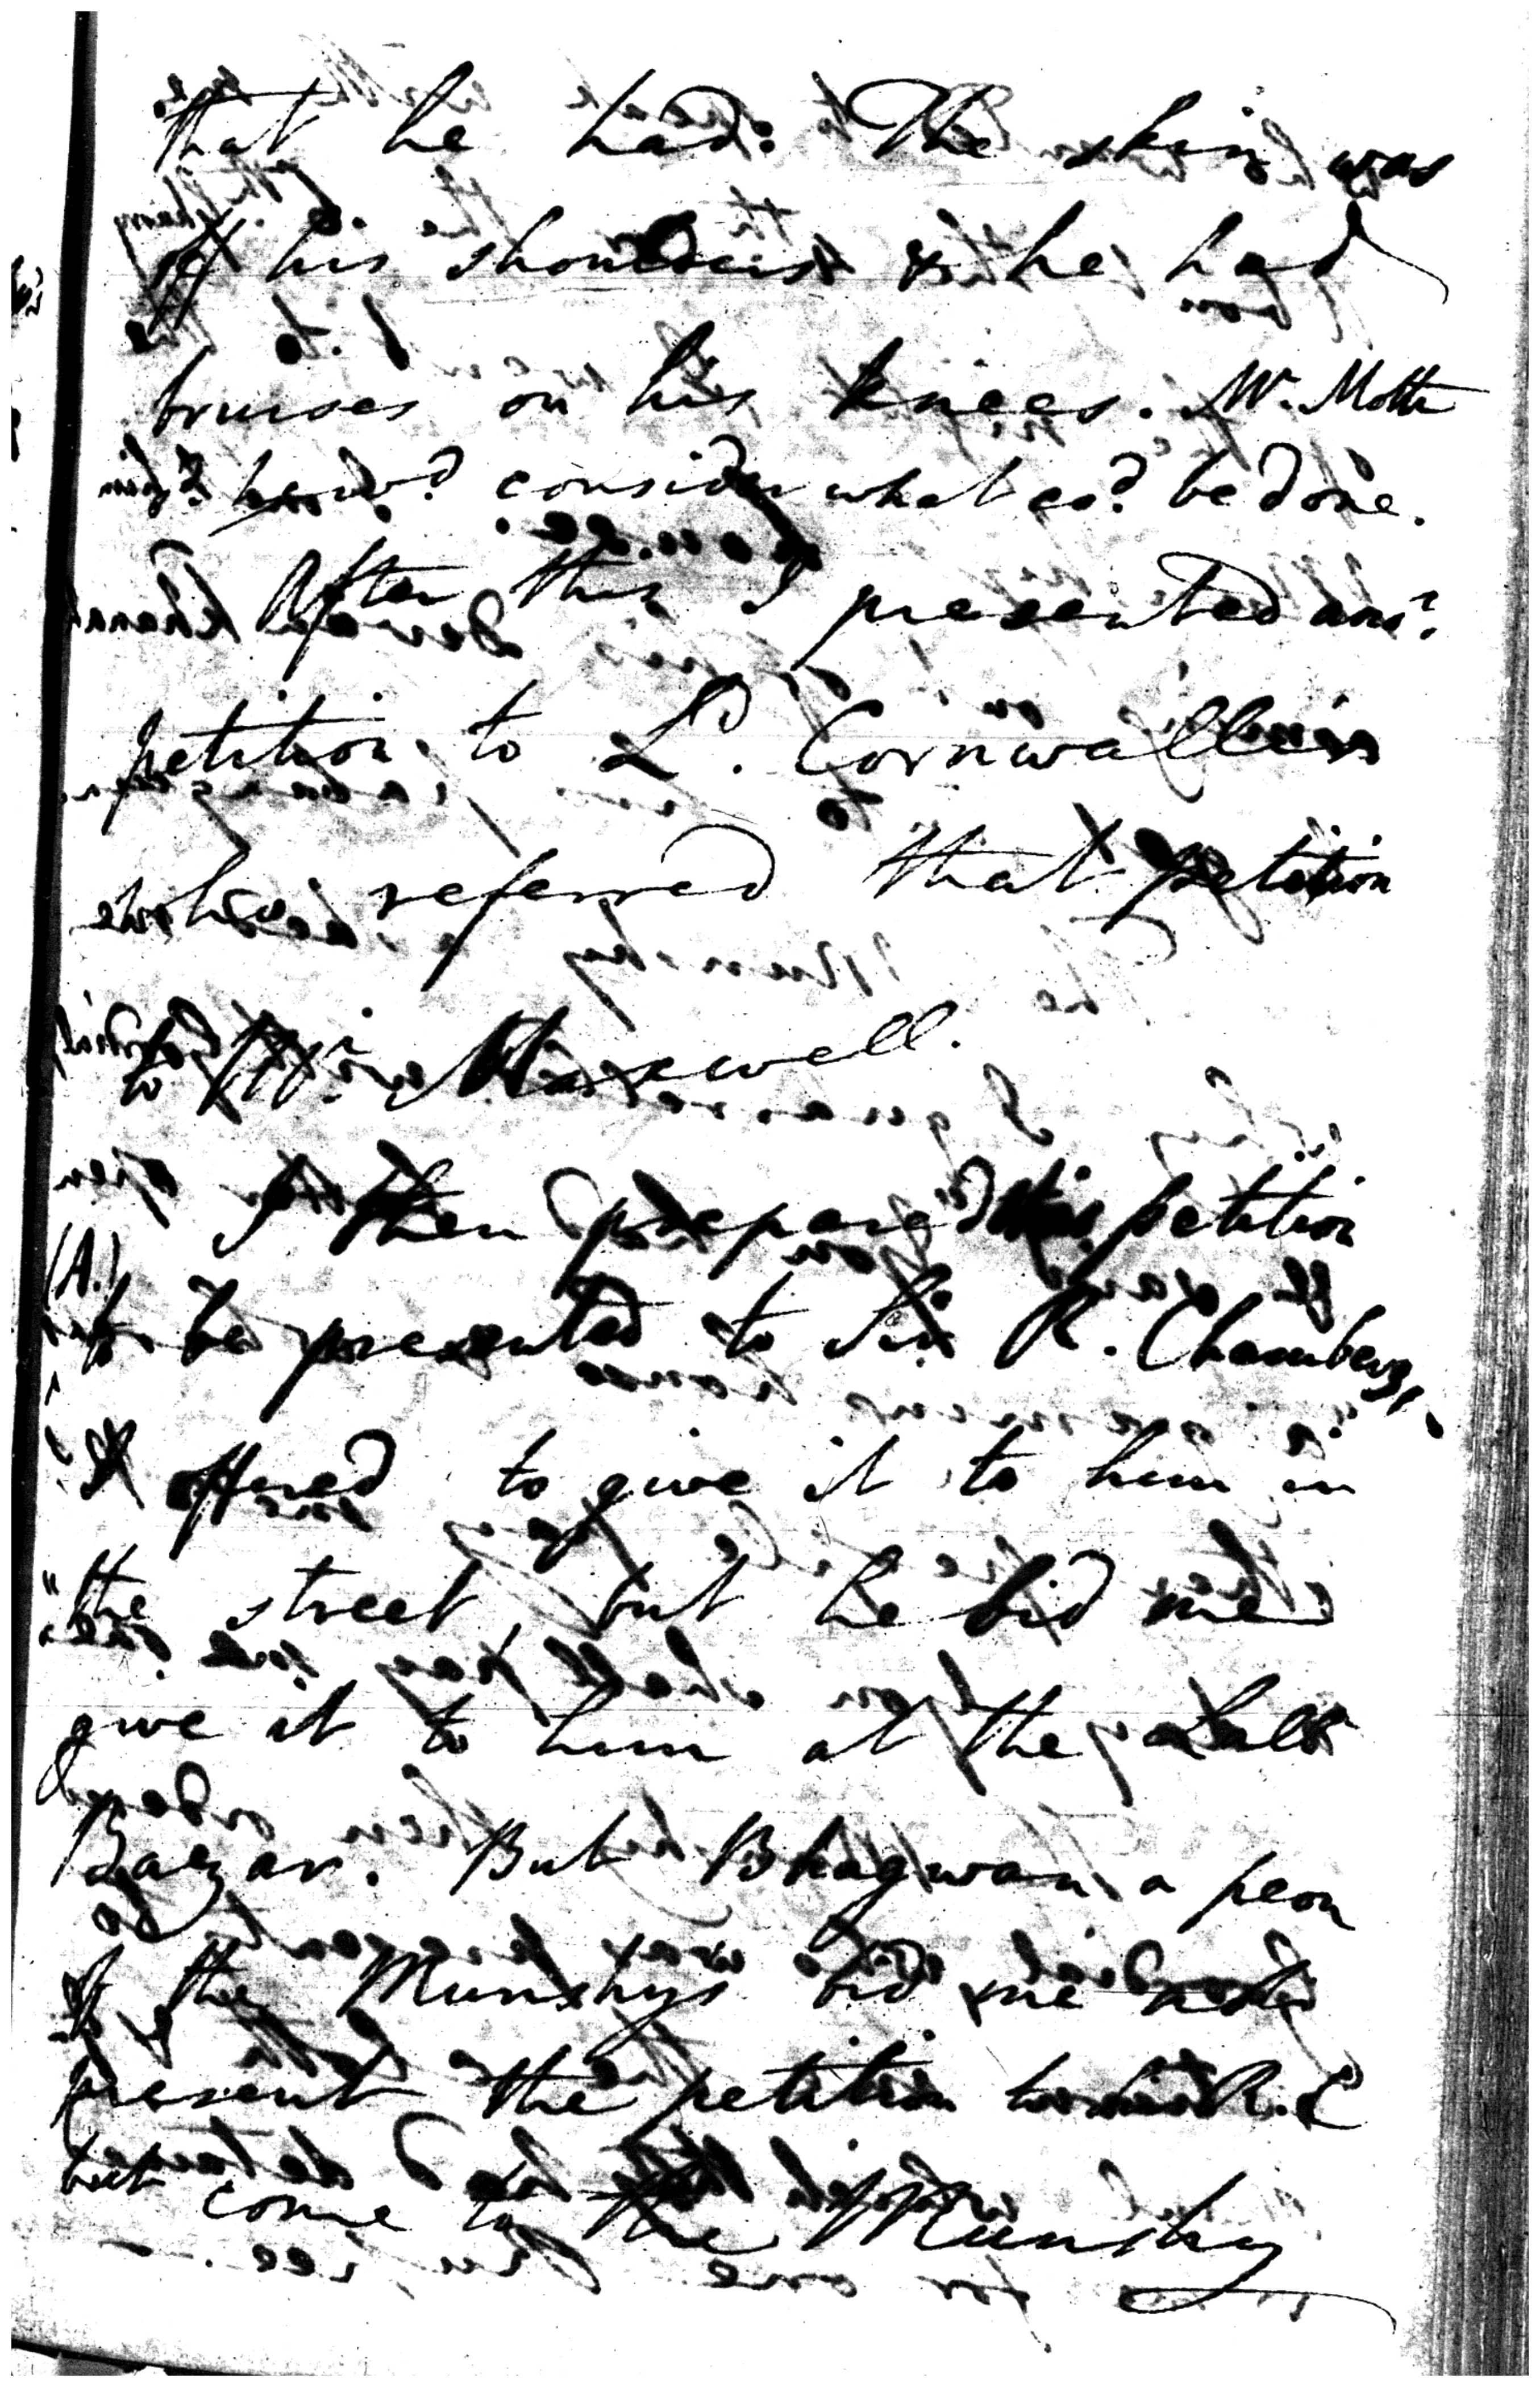 that he had. The skin was
off his shoulders & he had
bruises on his knees. Mr. Motte
said he wd. consider what cod. be done.
After this I presented anor.
petition to Ld. Cornwallis
who referred that petition
to Mr. Maxwell.
I then prepared this petition
(A.)
to be presented to Sir R. Chambers,
& offered to give it to him in
the street, but he bid me
give it to him at the Lall
Bazar. But Bhagwan a peon
of the Munshys bid me not
present the petition to Sir R. C
but come to the Munshy